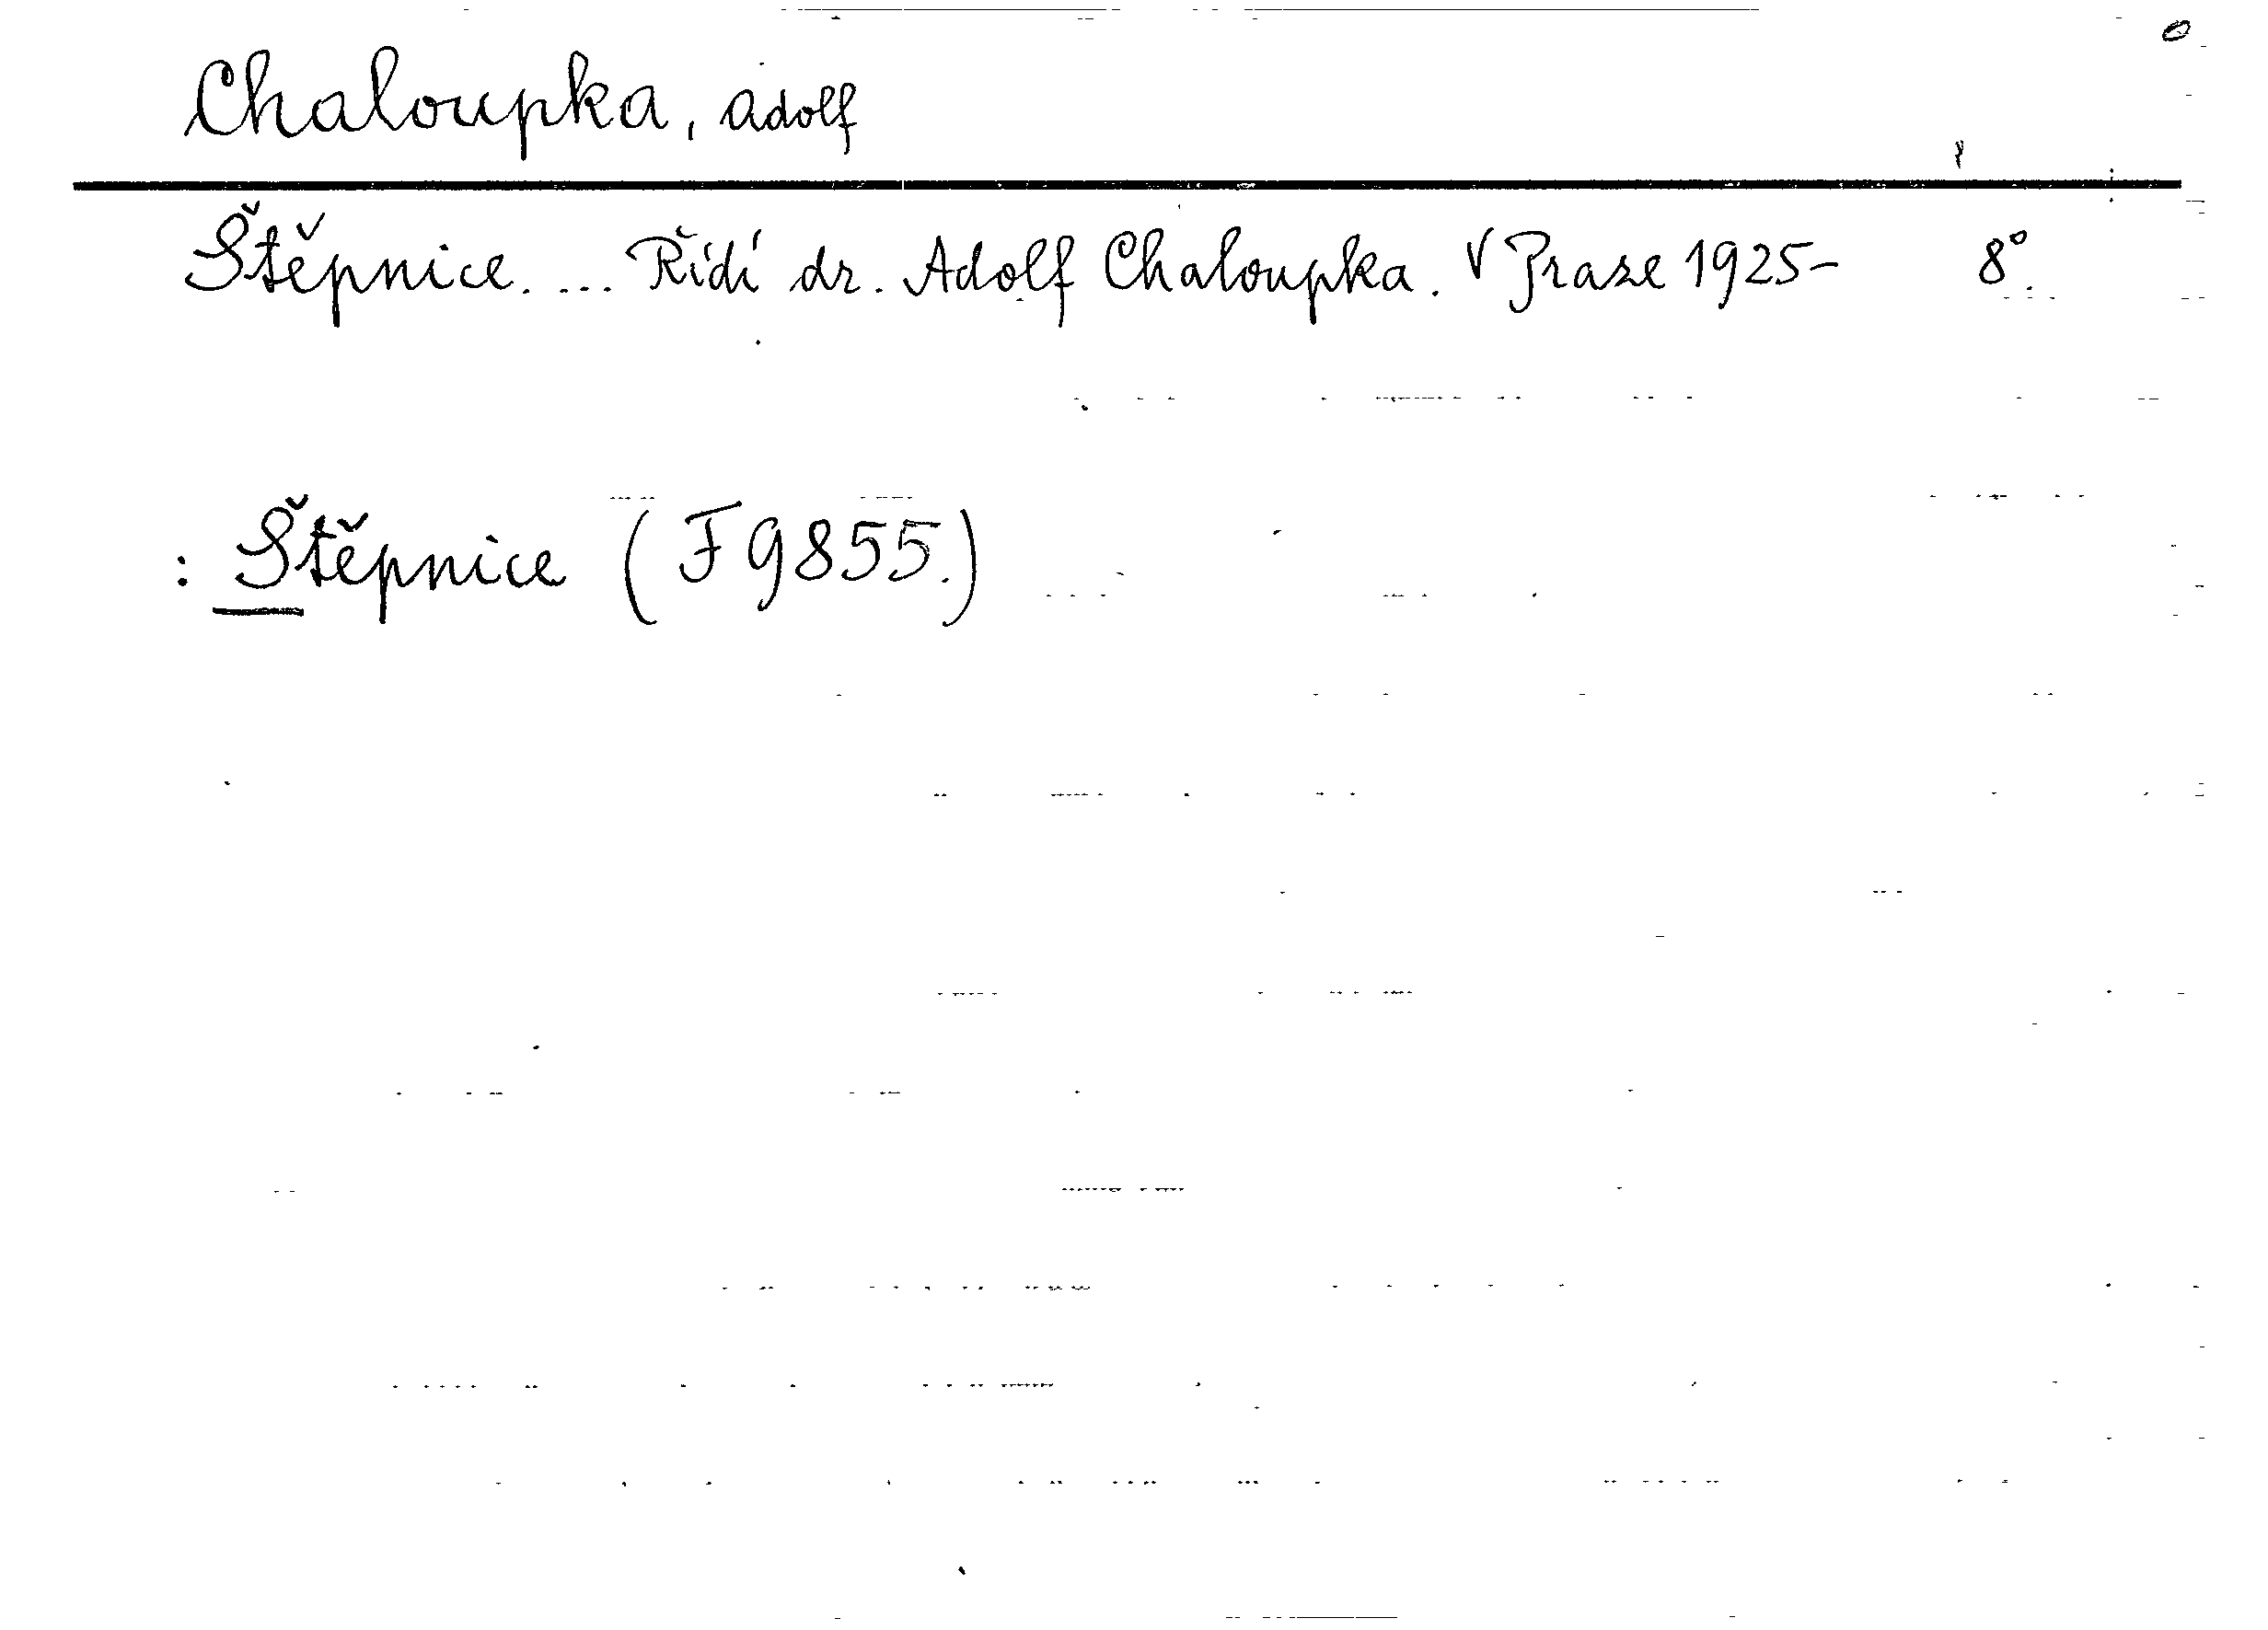 Chaloupka, Adolf
Štěpnice. ... Řídí dr. Adolf Chaloupka. V Praze 1925- 8°.
: Štěpnice (F 9855.)